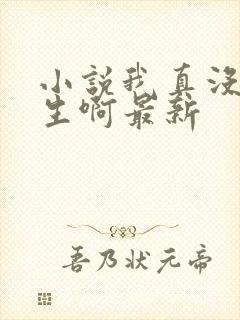 小説我真没
生啊最新
吾乃状元帝